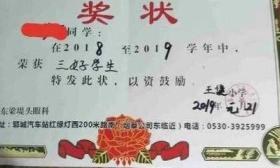 奖状
同学：
在2018至2019学年中，
荣获 三好学生
特发此状，以资鼓励
小学
2019年元月21
东梁堤头眼科
址：郓城汽车站红绿灯西200米路南（烟草公司东临近） 电话：0530-3925999